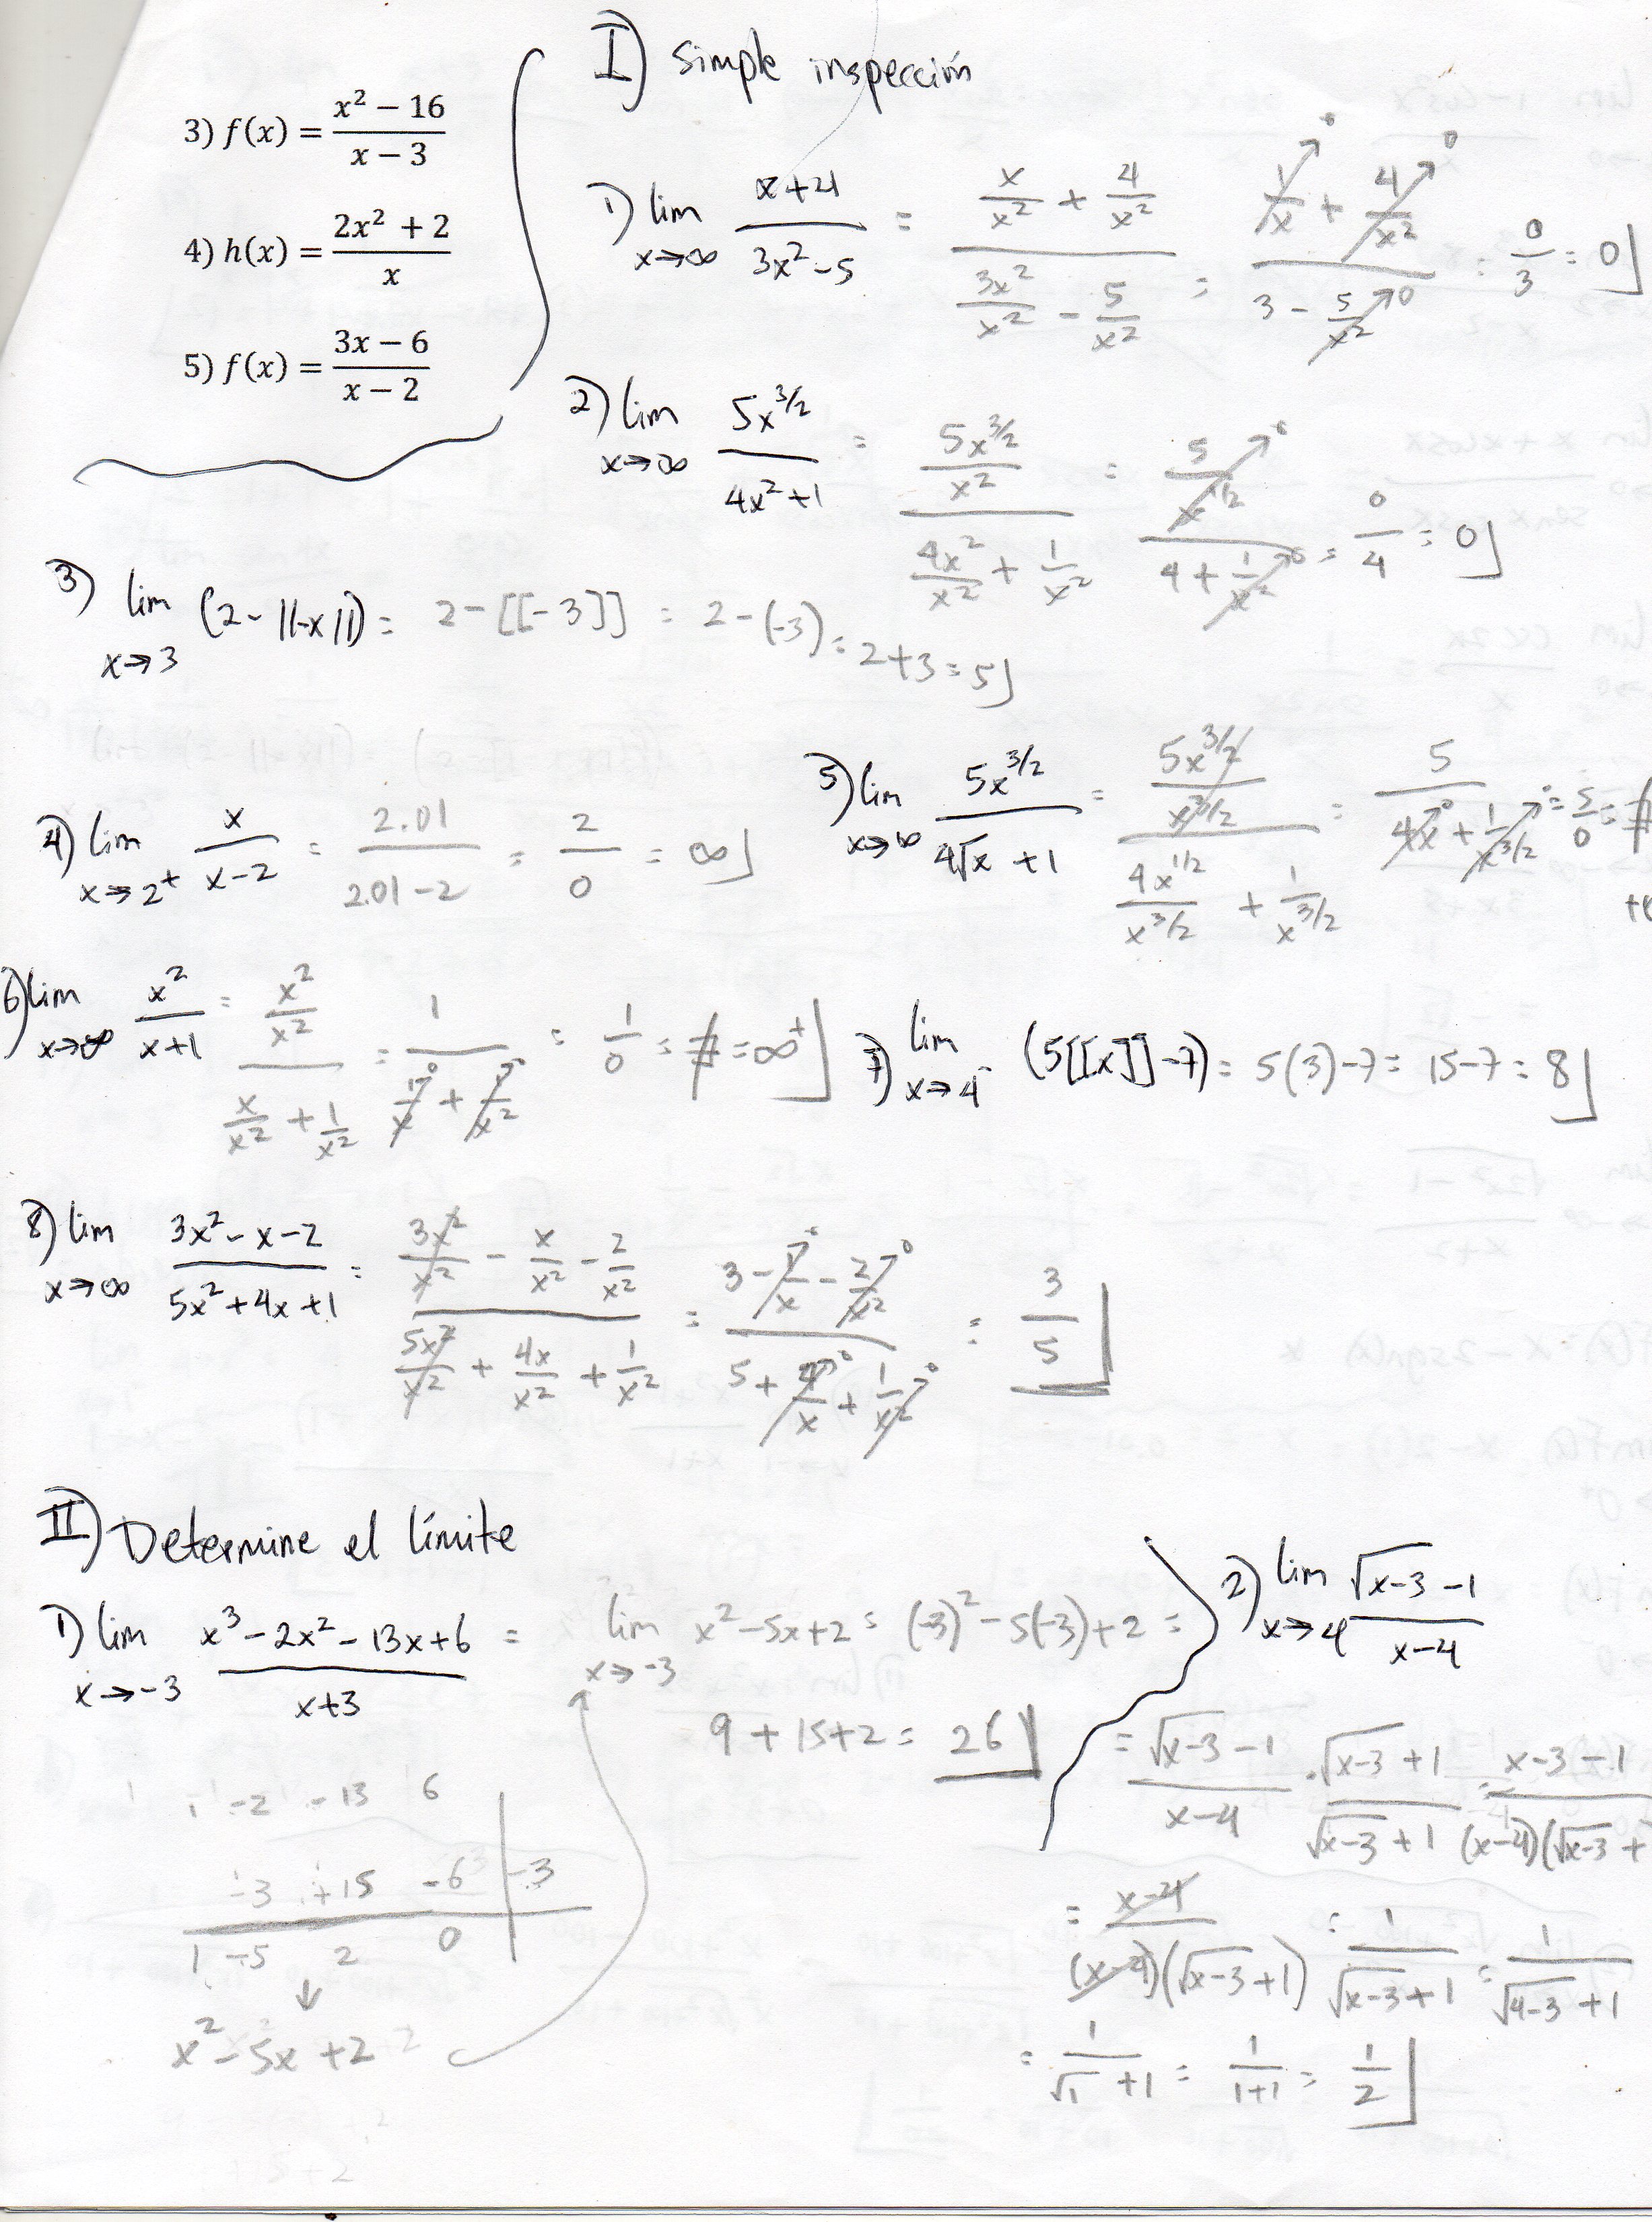 3) f(x) = (x² − 16)/(x − 3)
4) h(x) = (2x² + 2)/x
5) f(x) = (3x − 6)/(x − 2)
I) Simple inspección
1) lim x→∞ (x+4)/(3x²−5) = (x/x² + 4/x²)/(3x²/x² − 5/x²) = (1/x↗0 + 4/x²↗0)/(3 − 5/x²↗0) = 0/3 = 0
2) lim x→∞ 5x^(3/2)/(4x²+1) = (5x^(3/2)/x²)/(4x²/x² + 1/x²) = (5/x^(1/2)↗0)/(4 + 1/x²↗0) = 0/4 = 0
3) lim x→3 (2−||−x||) = 2−[[−3]] = 2−(−3) = 2+3 = 5
4) lim x→2⁺ x/(x−2) = 2.01/(2.01−2) = 2/0 = ∞
5) lim x→∞ 5x^(3/2)/(4√x +1) = (5x^(3/2)/x^(3/2))/(4x^(1/2)/x^(3/2) + 1/x^(3/2)) = 5/(4x↗0 + 1/x^(3/2)↗0) = 5/0 = ∄
6) lim x→∞ x²/(x+1) = (x²/x²)/(x/x² + 1/x²) = 1/(1/x↗0 + 1/x²↗0) = 1/0 = ∄ = ∞⁺
7) lim x→4⁻ (5[[x]]−7) = 5(3)−7 = 15−7 = 8
8) lim x→∞ (3x²−x−2)/(5x²+4x+1) = (3x²/x² − x/x² − 2/x²)/(5x²/x² + 4x/x² + 1/x²) = (3 − 1/x↗0 − 2/x²↗0)/(5 + 4/x↗0 + 1/x²↗0) = 3/5
II) Determine el límite
1) lim x→−3 (x³−2x²−13x+6)/(x+3) = lim x→−3 x²−5x+2 = (−3)²−5(−3)+2 =
9+15+2 = 26
1 −2 −13 6
−3 +15 −6 | −3
1 −5 2 0
↓
x²−5x+2
2) lim x→4 (√(x−3) −1)/(x−4)
= (√(x−3) −1)/(x−4) · (√(x−3) +1)/(√(x−3) +1) = (x−3−1)/((x−4)(√(x−3) +
= (x−4)/((x−4)(√(x−3)+1)) = 1/(√(x−3)+1) = 1/(√(4−3)+1)
= 1/(√1 +1) = 1/(1+1) = 1/2